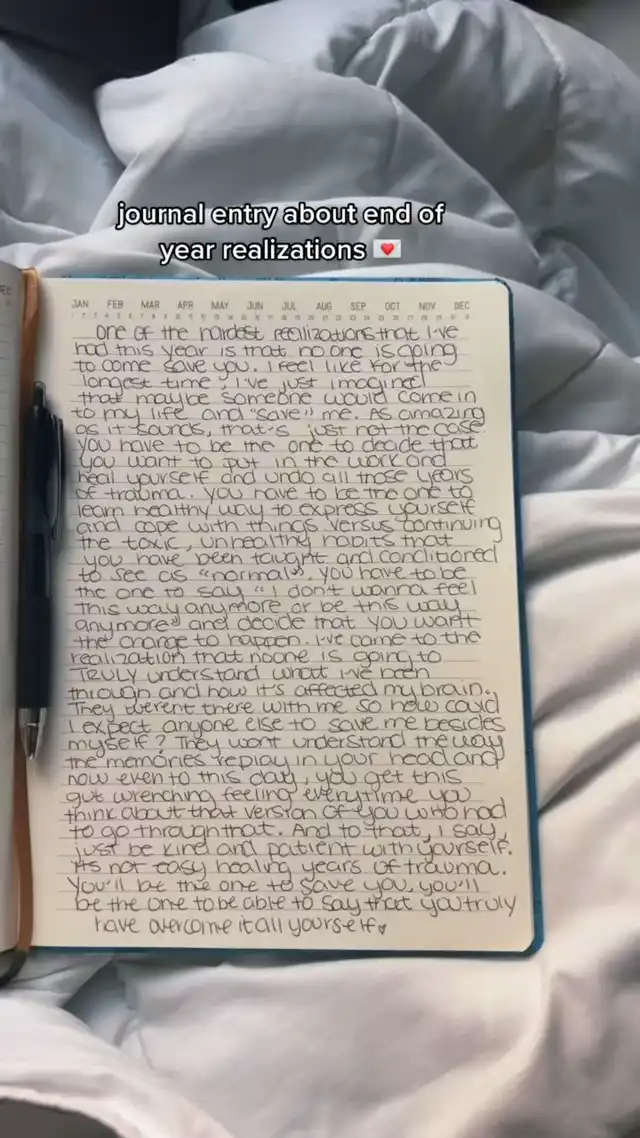 journal entry about end of
year realizations 💌
JAN FEB MAR APR MAY JUN JUL AUG SEP OCT NOV DEC
one of the hardest realizations that I've
had this year is that no one is going
to come save you. I feel like for the
longest time, I've just imagined
that maybe someone would come in
to my life and "save" me. As amazing
as it sounds, that's just not the case.
you have to be the one to decide that
you want to put in the work and
heal yourself and undo all those years
of trauma. you have to be the one to
learn healthy way to express yourself
and cope with things versus continuing
the toxic, unhealthy habits that
you have been taught and conditioned
to see as "normal". you have to be
the one to say "I don't wanna feel
this way anymore or be this way
anymore" and decide that you want
the change to happen. I've come to the
realization that noone is going to
TRULY understand what I've been
through and how it's affected my brain.
They werent there with me so how could
I expect anyone else to save me besides
myself? They wont understand the way
the memories replay in your head and
how even to this day, you get this
gut wrenching feeling everytime you
think about that version of you who had
to go through that. And to that, I say,
just be kind and patient with yourself.
its not easy healing years of trauma.
You'll be the one to save you, you'll
be the one to be able to say that you truly
have overcome it all yourself♥